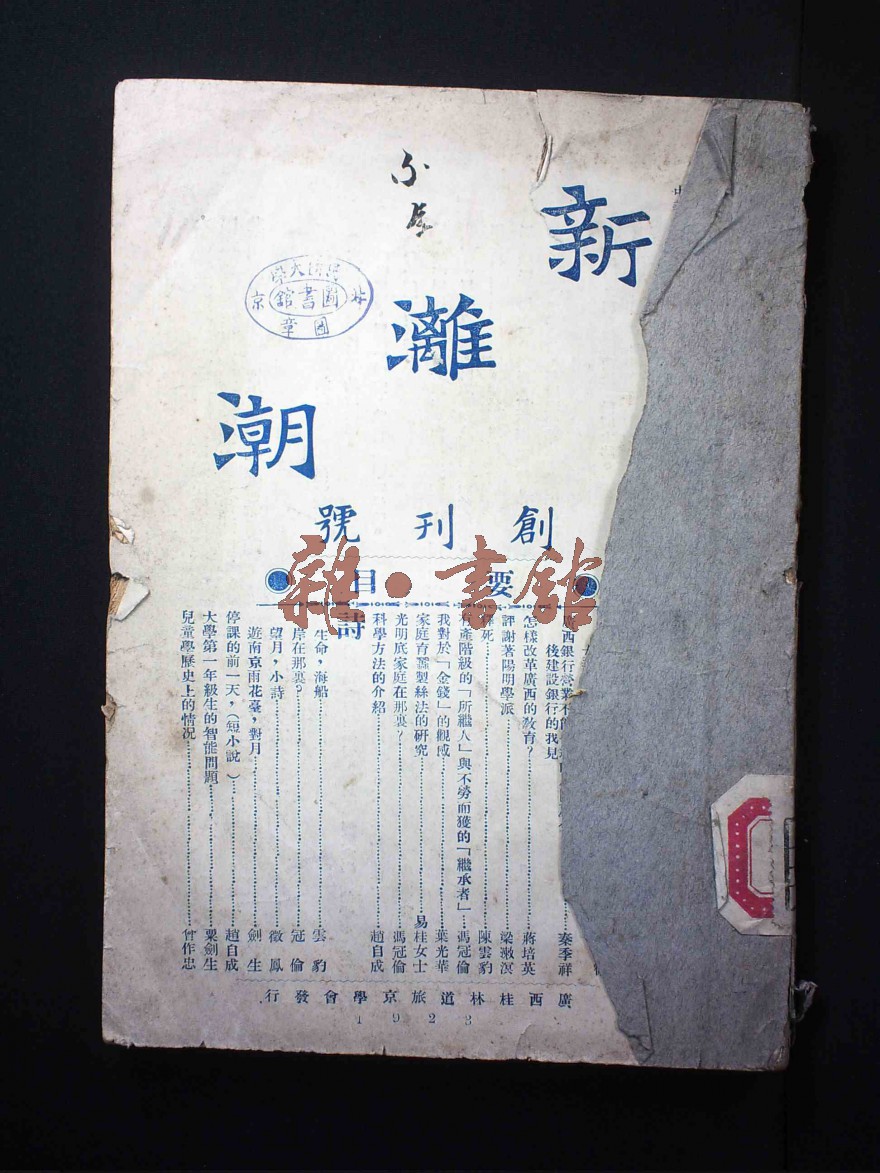 新
灕
潮
創刊號
要目
廣西銀行營業
後建設銀行的我見……秦季祥
怎樣改革廣西的教育？……蔣培英
評謝著陽明學派……梁漱溟
死……陳雲豹
有產階級的「所繼人」與不勞而獲的「繼承者」…馮冠倫
我對於「金錢」的觀感……葉光華
家庭育蠶製絲法的研究……易桂女士
光明底家庭在那裏？……馮冠倫
科學方法的介紹……趙自成
詩
生命，海船……雲豹
岸在那裏？……冠倫
望月，小詩……微鳳
遊南京雨花臺，對月……劍生
停課的前一天，（短小說）……趙自成
大學第一年級生的智能問題……粟劍生
兒童學歷史上的情況……曾作忠
廣西桂林道旅京學會發行
1923
圖書館
雜·書館